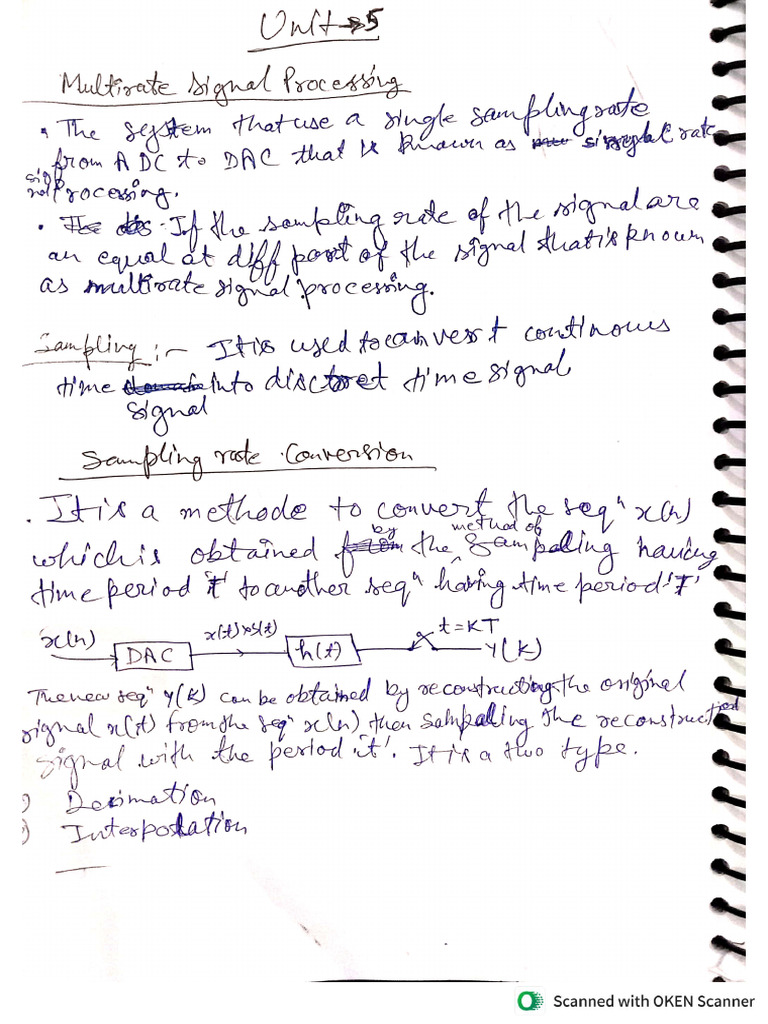 Unit-5
Multirate Signal Processing
• The system that use a single sampling rate
from ADC to DAC that is known as single rate
signal Processing.
• If the sampling rate of the signal are
an equal at diff part of the signal that is known
as multirate signal processing.
Sampling :- It is used to convert continous
time signal into discret time signal
Sampling rate Conversion
. It is a methode to convert the seqⁿ x(n)
which is obtained by the method of sampaling having
time period 't' to another seqⁿ having time period 'T'
x(n) DAC x(t) h(t) t=KT Y(K)
The new seqⁿ Y(K) can be obtained by reconstructing the original
signal x(t) from the seqⁿ x(n), then sampaling the reconstructed
signal with the period 't'. It is a two type.
Decimation
Interpolation
Scanned with OKEN Scanner